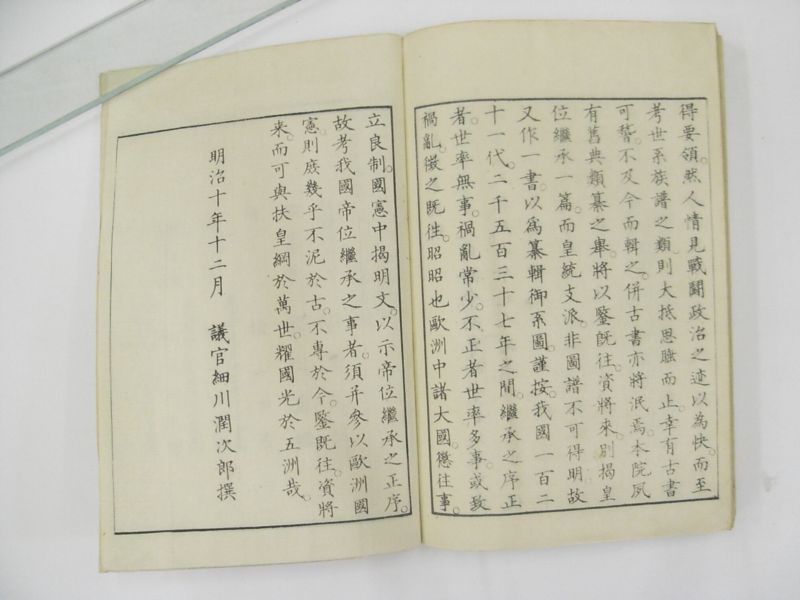 得要領。然人情見戰鬪政治之迹以為快。而至
考世系族譜之類。則大抵思臨而止。幸有古書
可稽。不及今而輯之。併古書亦將泯焉。本院夙
有舊典類纂之舉。將以鑒既往。資將來。別揭皇
位繼承一篇。而皇統支派。非圖譜不可得明。故
又作一書。以為纂輯御系圖。謹按。我國一百二
十一代。二千五百三十七年之間。繼承之序正
者。世率無事。禍亂常少。不正者世率多事。或致
禍亂。徵之既往。昭昭也。歐洲中諸大國。懲往事。
立良制。國憲中揭明文。以示帝位繼承之正序。
故考我國帝位繼承之事者。須并參以歐洲國
憲。則庶幾乎不泥於古。不專於今。鑒既往。資將
來。而可與扶皇綱於萬世。耀國光於五洲哉。
明治十年十二月　議官細川潤次郎撰